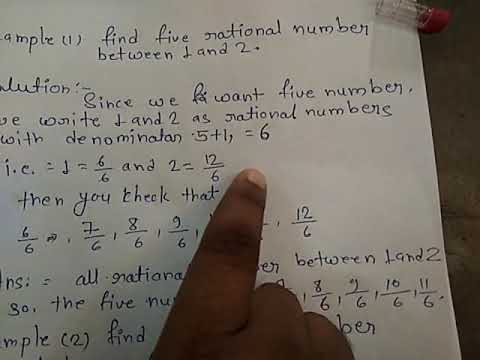 ample (1) find five rational number
between 1 and 2.
lution:-
Since we want five number,
we write 1 and 2 as rational numbers
with denominatar 5+1, = 6
i.e. = 1 = 6/6 and 2 = 12/6
then you check that
6/6 =, 7/6, 8/6, 9/6, , 12/6
Ans: = all rationa ber between 1 and 2
so, the five num , 8/6, 9/6, 10/6, 11/6.
ample (2) find mber